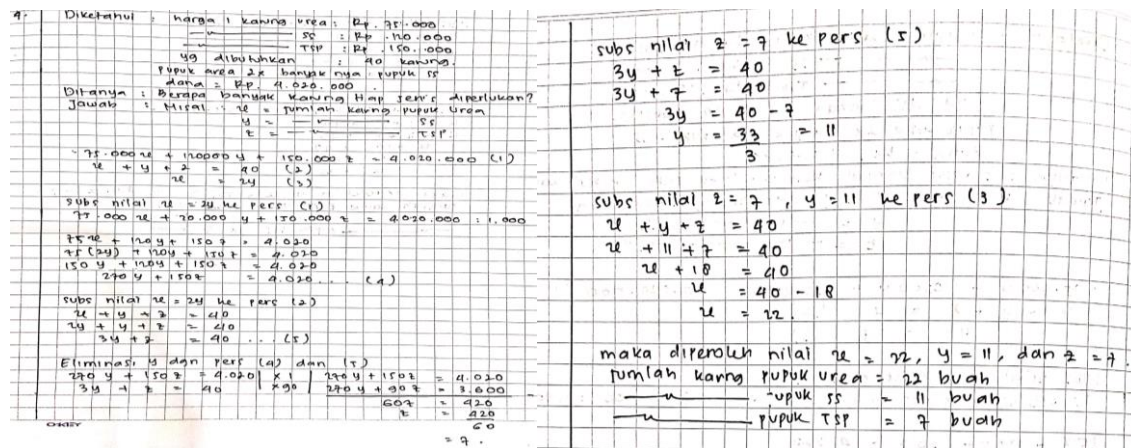 4. Diketahui : harga 1 karung urea : Rp. 75.000
SS : Rp 120.000
TSP : Rp. 150.000
yg dibutuhkan : 40 karung.
Pupuk area 2x banyak nya pupuk SS
dana = Rp. 4.020.000
Ditanya : Berapa banyak karung tiap jenis diperlukan?
Jawab : Misal x = jumlah karung pupuk urea
y = SS
z = TSP
75.000x + 120000y + 150.000z = 4.020.000 (1)
x + y + z = 40 (2)
x = 2y (3)
subs nilai x = 2y ke pers (1)
75.000x + 20.000y + 150.000z = 4.020.000 : 1.000
75x + 120y + 150z = 4.020
75(2y) + 120y + 150z = 4.020
150y + 120y + 150z = 4.020
270y + 150z = 4.020... (4)
subs nilai x = 2y ke pers (2)
x + y + z = 40
2y + y + z = 40
3y + z = 40 ... (5)
Eliminasi y dgn pers (4) dan (5)
270y + 150z = 4.020 | x1 | 270y + 150z = 4.020
3y + z = 40 | x90 | 270y + 90z = 3.600
60z = 420
z = 420
60
= 7.
subs nilai z = 7 ke pers (5)
3y + z = 40
3y + 7 = 40
3y = 40 - 7
y = 33 = 11
3
subs nilai z = 7, y = 11 ke pers (3)
x + y + z = 40
x + 11 + 7 = 40
x + 18 = 40
x = 40 - 18
x = 22.
maka diperoleh nilai x = 22, y = 11, dan z = 7.
jumlah karng pupuk urea = 22 buah
pupuk SS = 11 buah
pupuk TSP = 7 buah